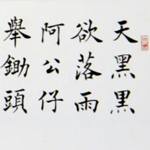 天黑黑
欲落雨
阿公仔
舉鋤頭